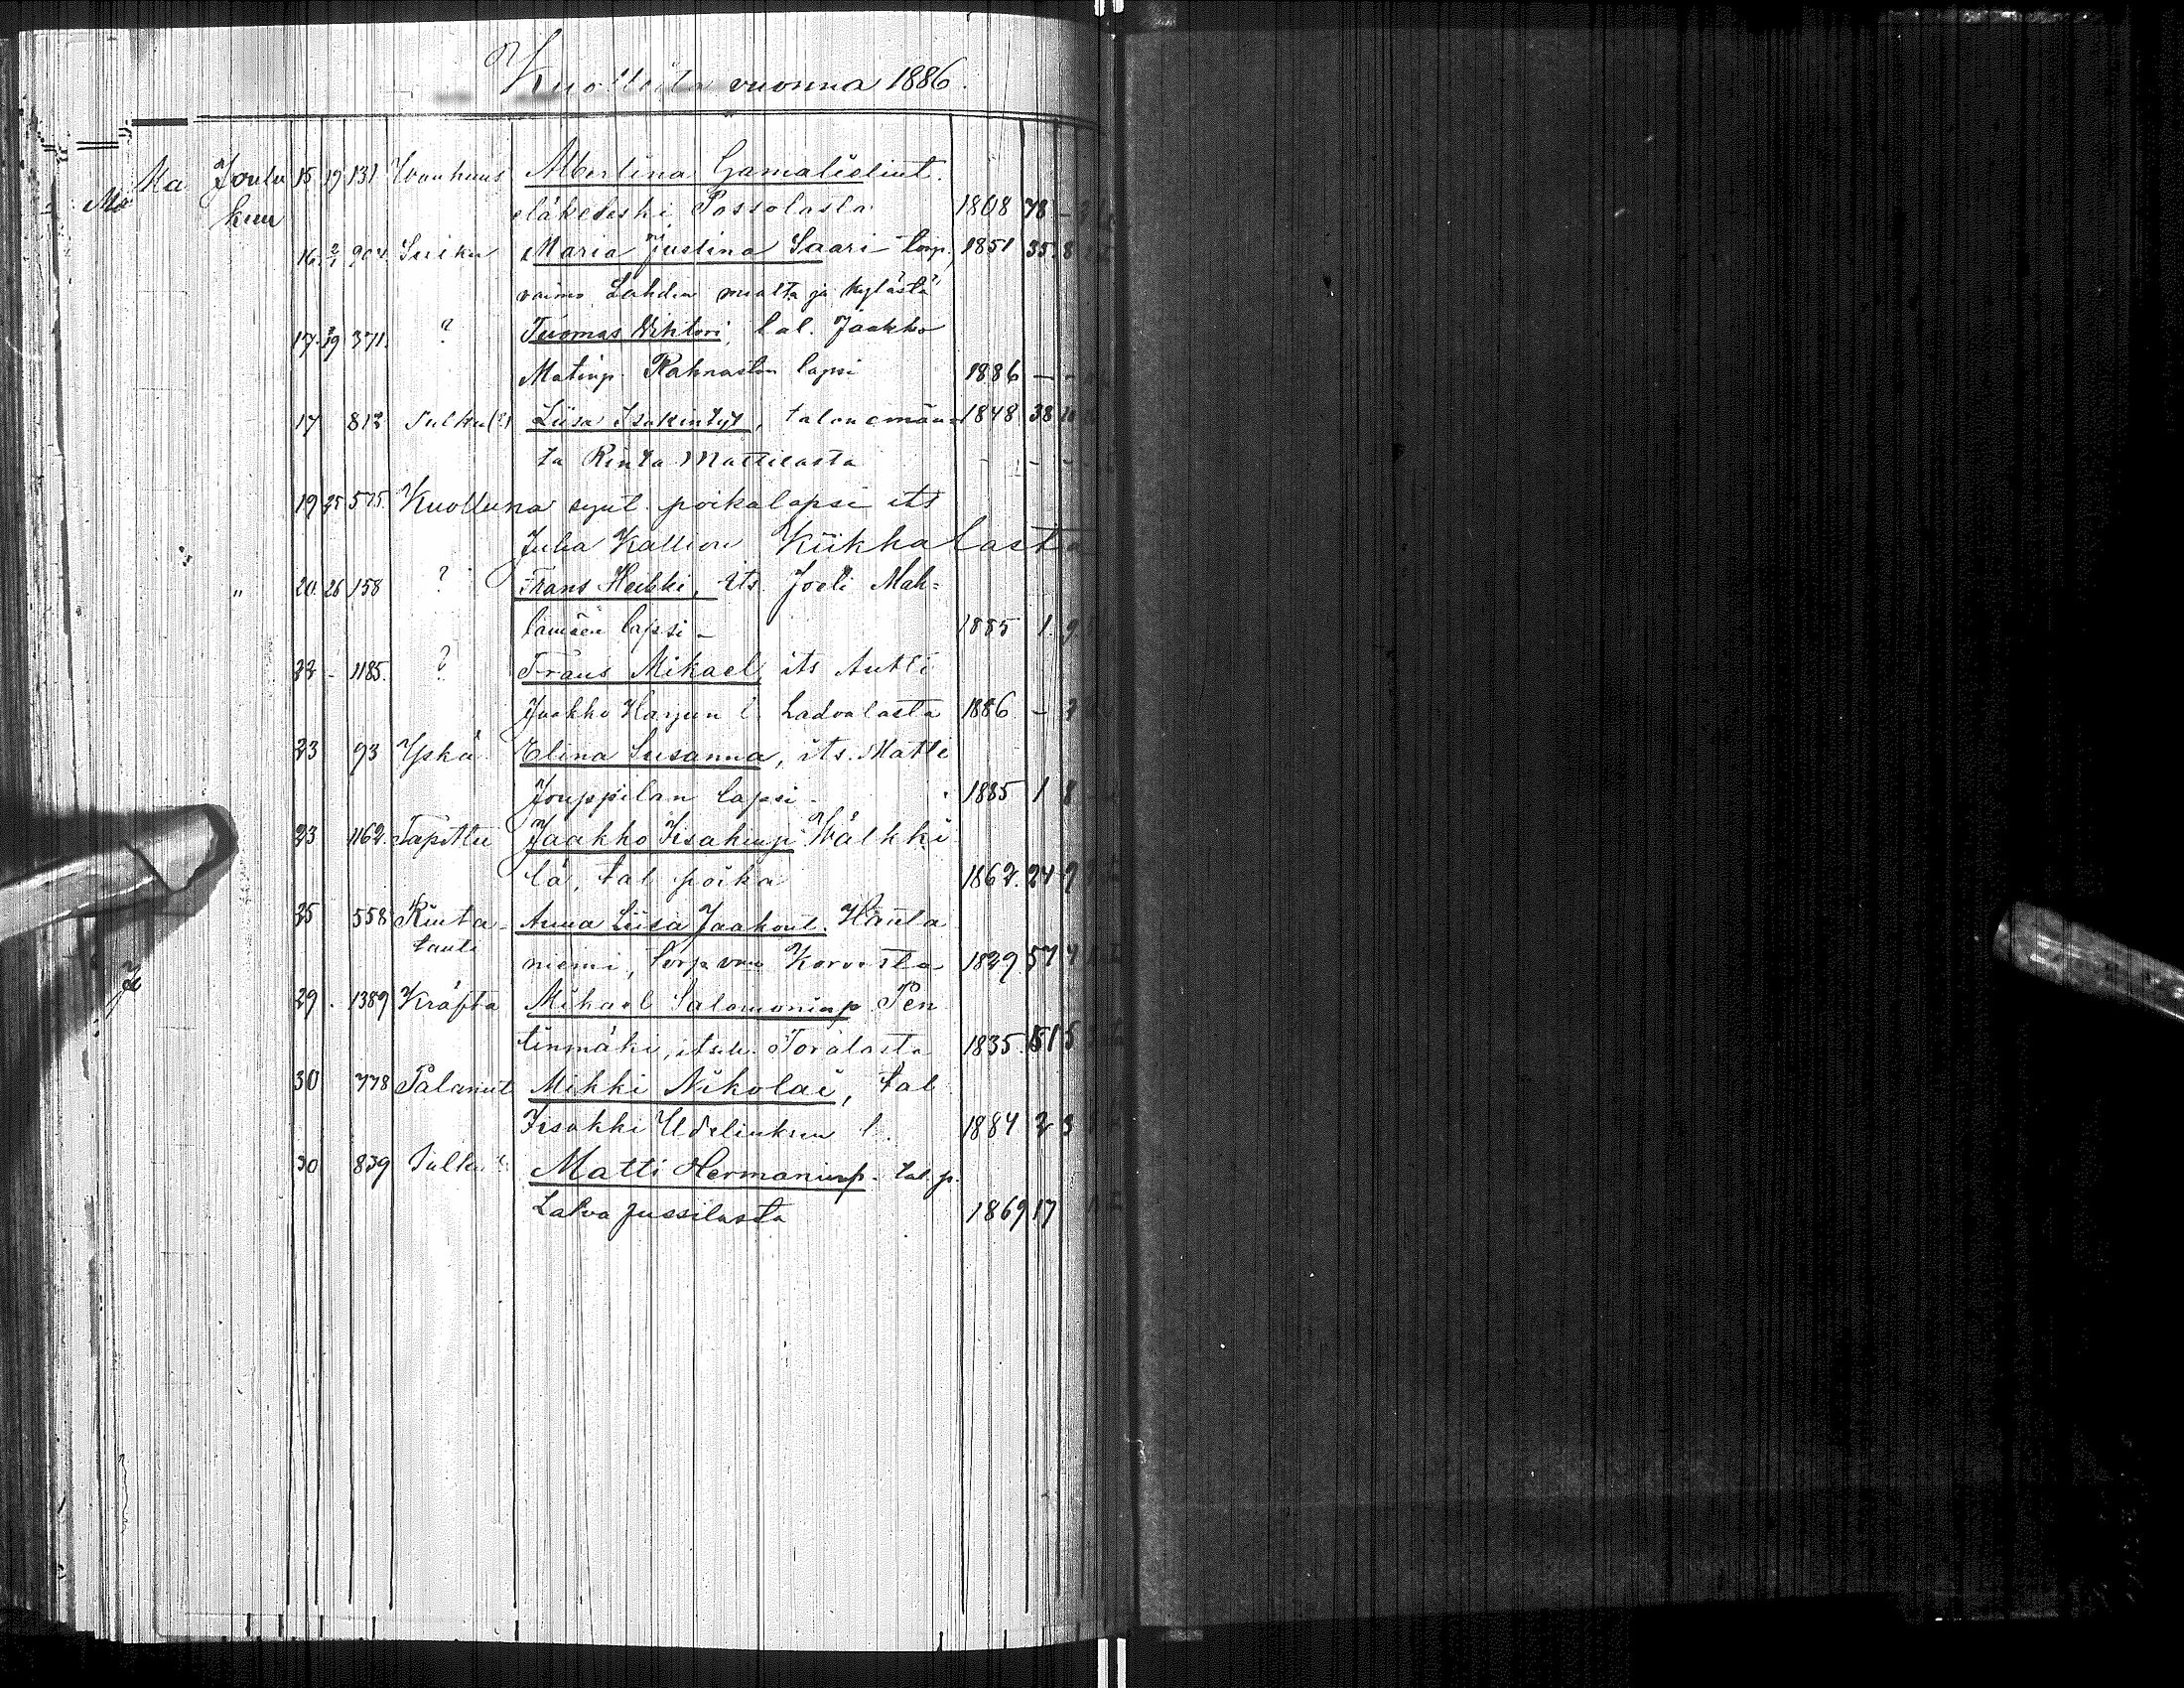 Kuolleita vuonna 1886.
Ma Joulu 15 19 131 Wanhuus Albertina Gamalielint.
kuu eläkeleski Passolasta 1808 78 -
16. 904. Suiku Maria Justina Saari torp. 1851 35. 8
vaimo Lahden maalta ja kylästä
17. 371. ? Tuomas Wihtori, tal. Jaakko
Matinp. Rahnaston lapsi 1886 - -
17 813 Sulku(?) Liisa Isakintyt, talonemän= 1848 38 10
tä Rinta Mattilasta - - -
19 25 575. Kuolluna synt. poikalapsi its
Juha Kallion Kiikkalasta
" 20. 26 158 ? Frans Heikki, its. Joeli Mah=
lamäen lapsi - 1885 1. 9
22 - 1185. ? Frans Mikael, its Antti
Jaakko Harjun l. Ladvalasta 1886 -
23 93 Yskä Elina Susanna, its. Matti
Jouppilan lapsi - 1885 1 8
23 1162. Tapettu Jaakko Iisakinp. Wälkki
lä, tal. poika 1862. 24 9
25 558 Rinta- Anna Liisa Jaakont. Hauta
tauti niemi, torp. vaim Korvesta 1829. 57 4
29. 1389 Kräfta Mikael Salomoninp Pen
tinmäki, itsell. Torälästä 1835. 51 5
30 778 Palanut Mikki Nikolai, tal
Iisakki Udeliuksen l. 1884 2 3
30 839 Sulku Matti Hermaninp. tal. p.
Latva Jussilasta 1869 17